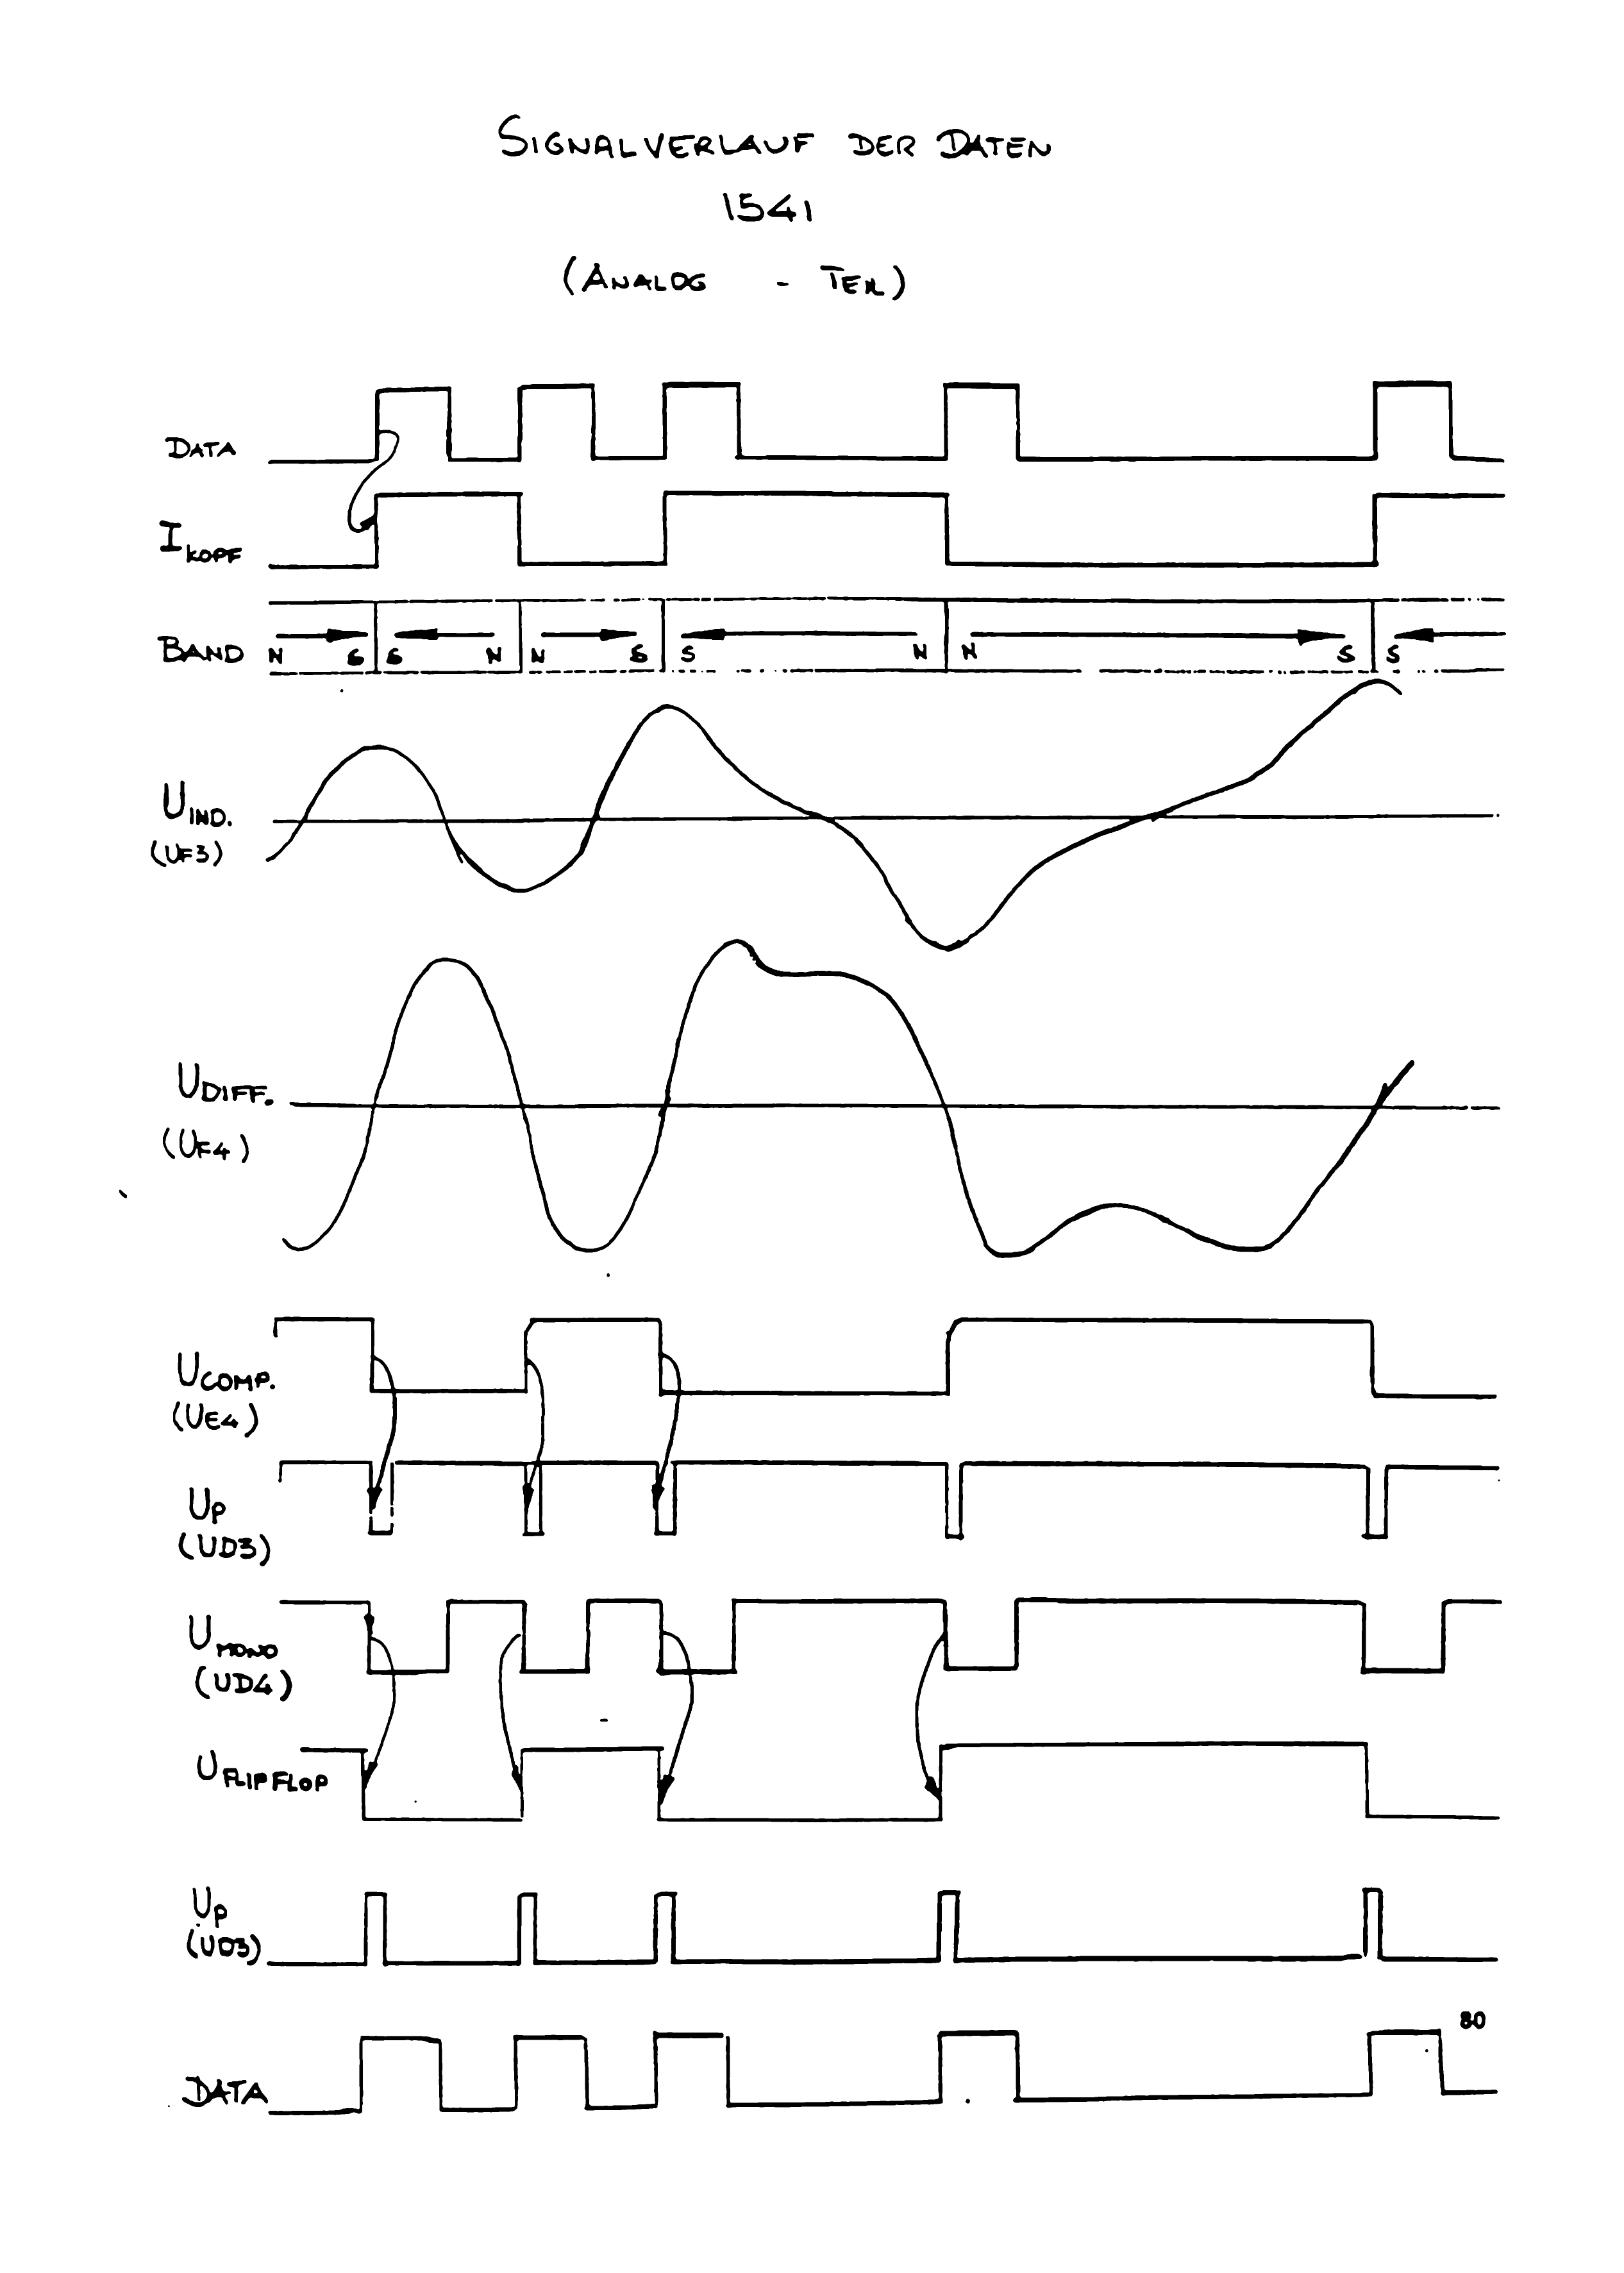 SIGNALVERLAUF DER DATEN
1541
(ANALOG - TEIL)
DATA
I KOPF
BAND N S S N N S S N N S S
U IND.
(UF3)
U DIFF.
(UF4)
U COMP.
(UE4)
UP
(UD3)
U MONO
(UD4)
U FLIPFLOP
UP
(UD3)
80
DATA